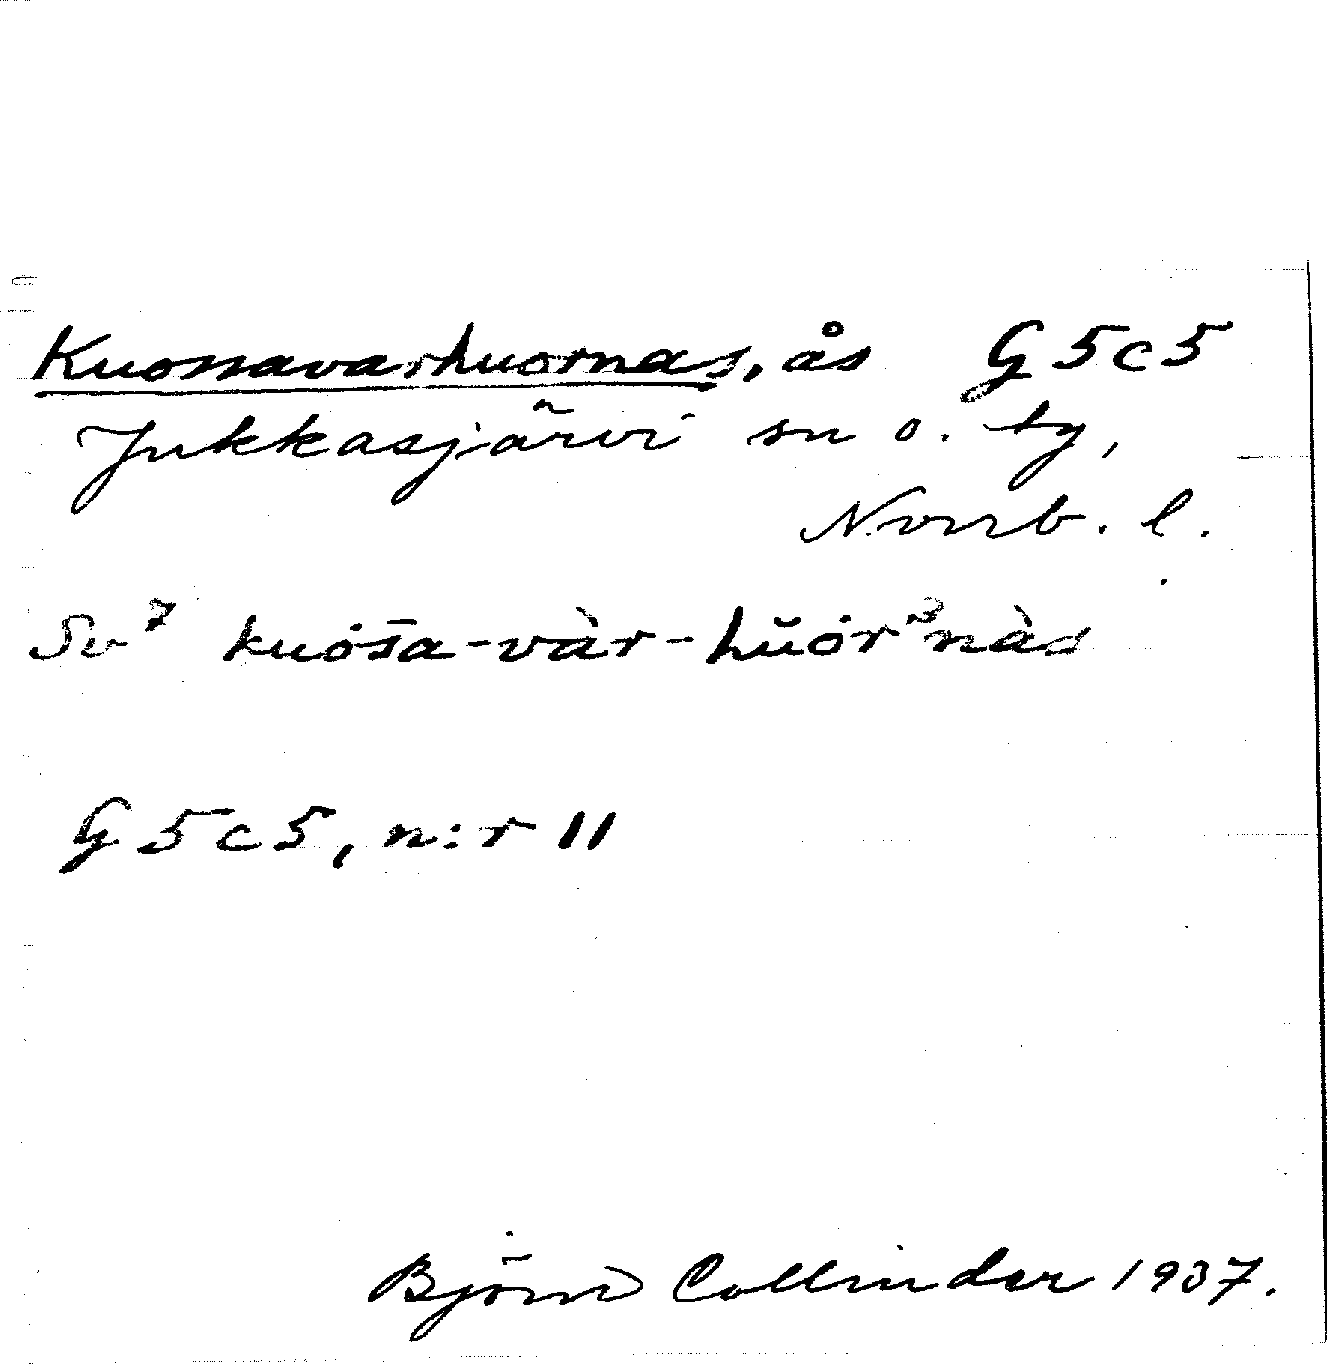 Kuossavarhuornas, ås G5c5
Jukkasjärvi sn o. tg,
Norrb. l.
Sv⁷ kuòs̄a-vàr-hŭòrᵊnàs
G5c5, n:r 11
Björn Collinder 1937.